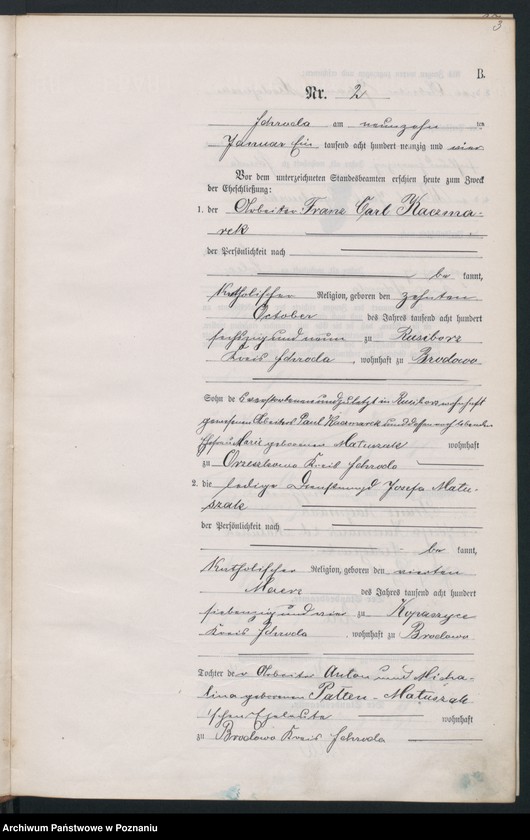 3
B.
Nr. 2
Schroda am neunzehn ten
Januar Ein tausend acht hundert neunzig und vier
Vor dem unterzeichneten Standesbeamten erschien heute zum Zweck
der Eheschließung:
1. der Arbeiter Franz Carl Kaczma-
rek
der Persönlichkeit nach
be kannt,
katholischer Religion, geboren den zehnten
October des Jahres tausend acht hundert
sechszig und neun zu Rusiborz
Kreis Schroda, wohnhaft zu Brodowo
Sohn des verstorbenen und zuletzt in Rusiborz wohnhaft
gewesenen Arbeiters Paul Kaczmarek und dessen noch lebenden
Ehefrau Marie geborenen Matuszak wohnhaft
zu Orzeszkowo Kreis Schroda
2. die ledige Dienstmagd Josefa Matu-
szak
der Persönlichkeit nach
be kannt,
katholischer Religion, geboren den vierten
Maerz des Jahres tausend acht hundert
siebenzig und vier zu Kopaszyce
Kreis Schroda, wohnhaft zu Brodowo
Tochter der Arbeiter Anton und Micha-
lina geborenen Patten-Matuszak
'schen Eheleute wohnhaft
zu Brodowo Kreis Schroda
Archiwum Państwowe w Poznaniu